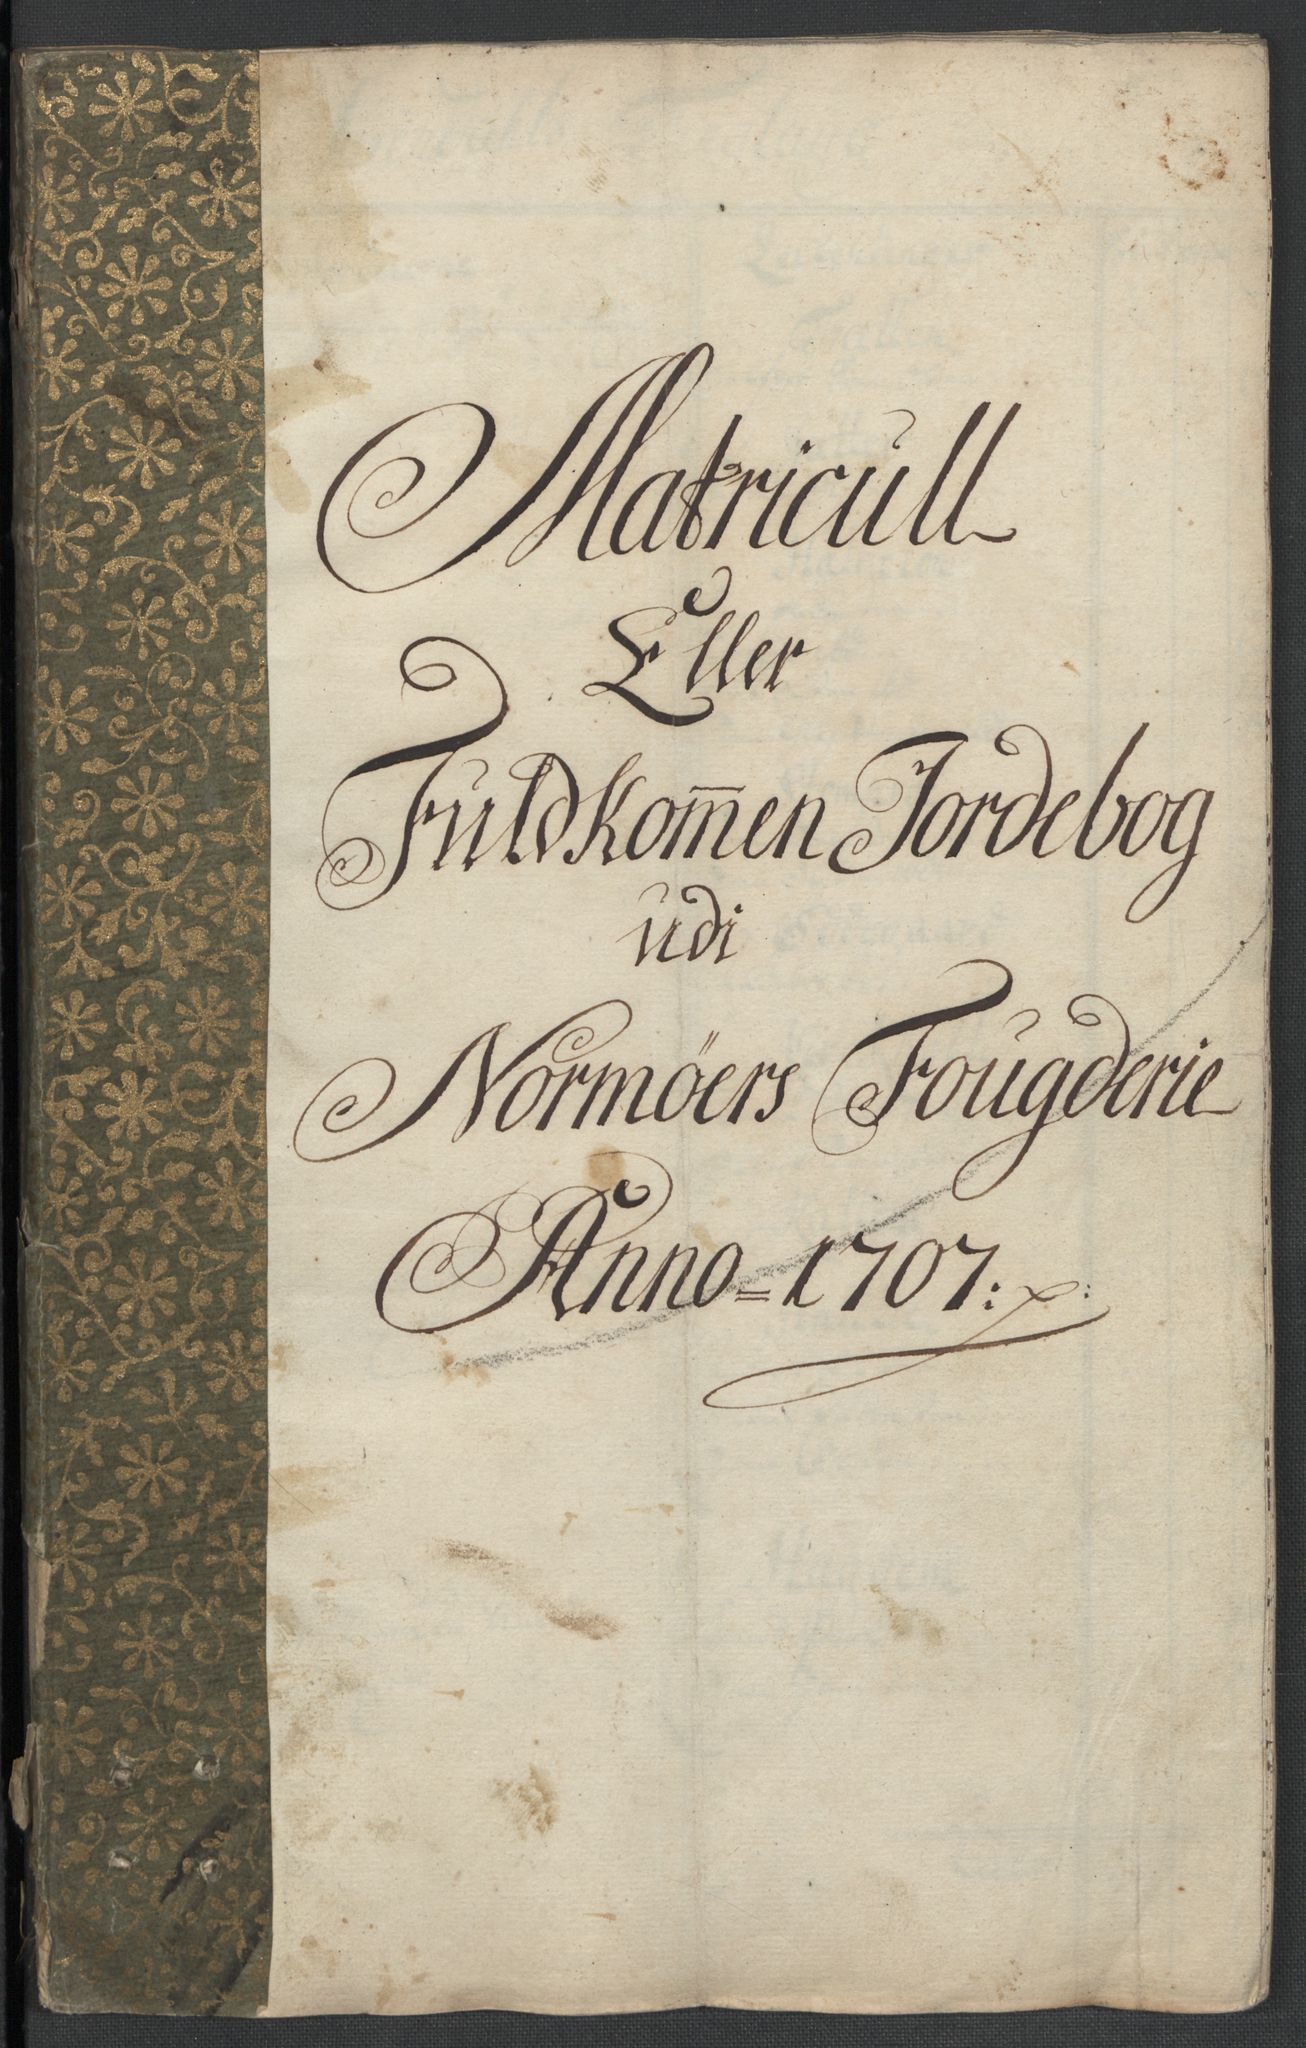 Matricull
Eller
Fuldkom̅en Jordebog
udi
Normöers Fougderie
Anno = 1707: